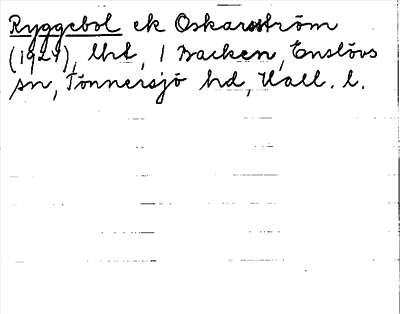 Ryggebol ek Oskarsström
(1929), lht, 1 Backen, Enslövs
sn, Tönnersjö hd, Hall. l.